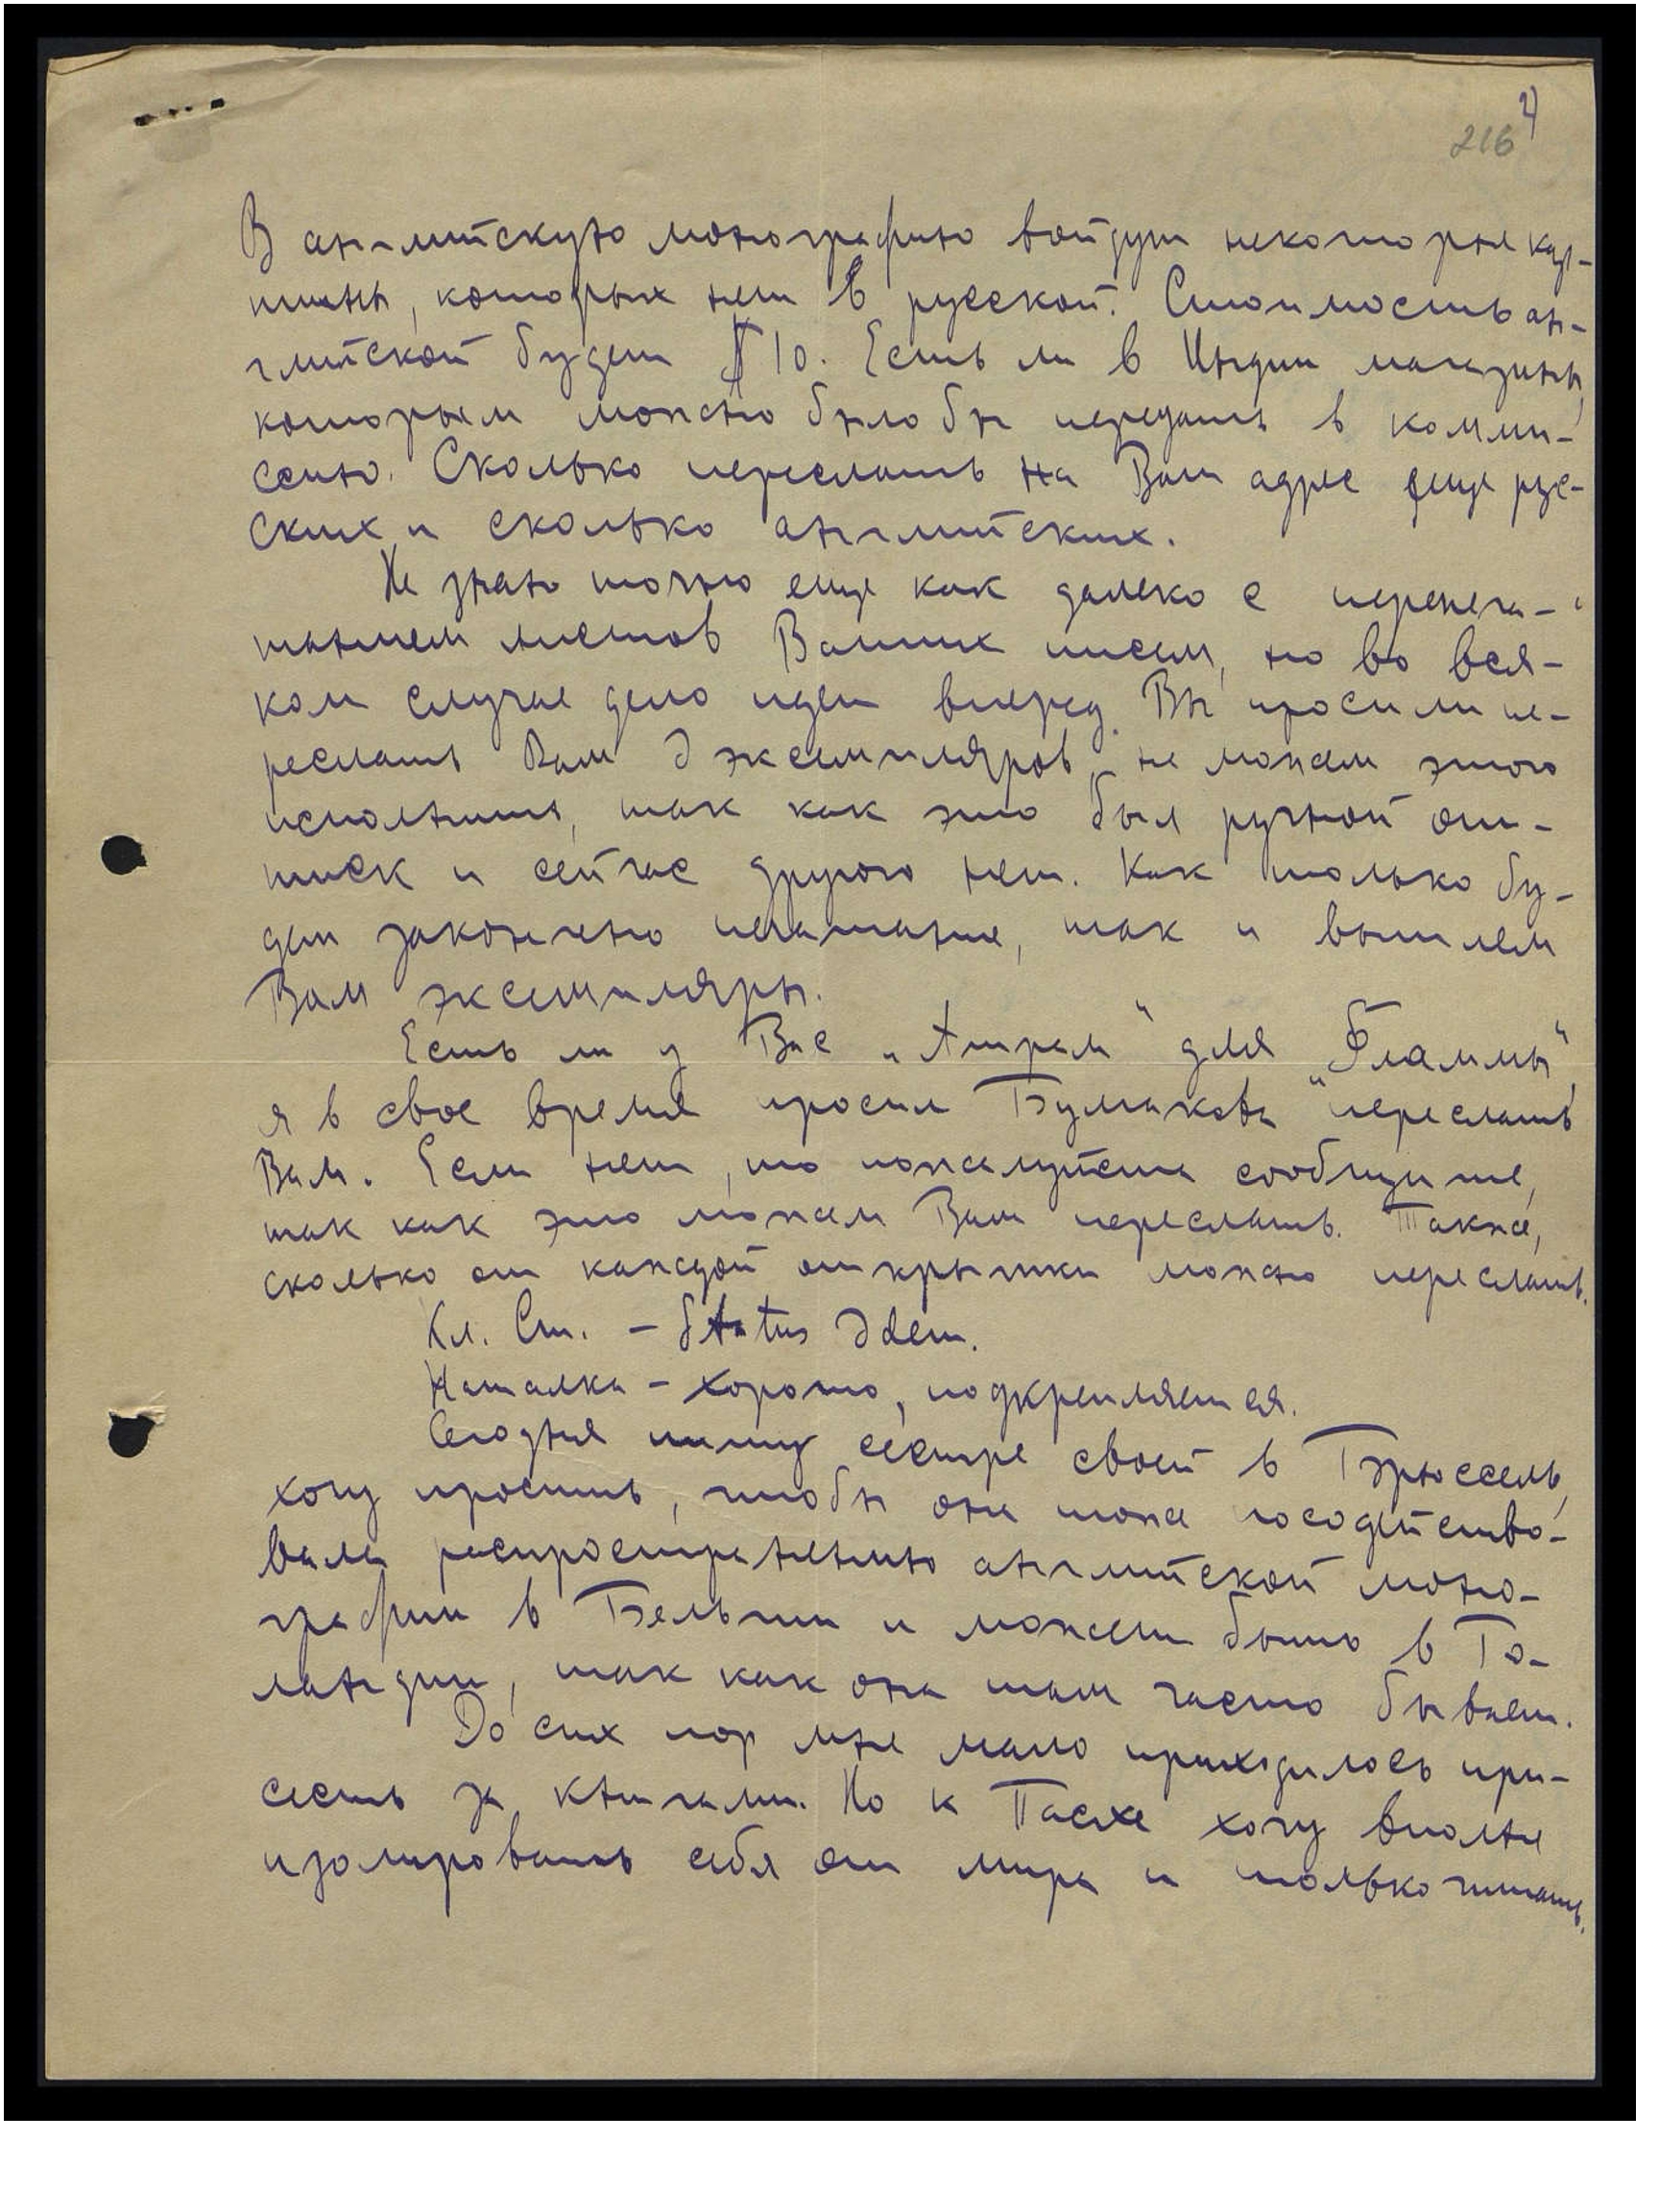 2)
216
В английскую монографию войдут некоторые кар-
тины, которых нет в русской. Стоимость ан-
глийской будет $10. Есть ли в Индии магазины,
которым можно было бы передать в комми-
ссию. Сколько переслать на Ваш адрес еще рус-
ских и сколько английских.
Не знаю точно еще как далеко с перепеча-
танием листов Ваших писем, но во вся-
ком случае дело идет вперед. Вы просили пе-
реслать Вам экземпляров, не можем этого
исполнить, так как это был ручной от-
тиск и сейчас другого нет. Как только бу-
дет закончено печатание, так и вышлем
Вам экземпляры.
Есть ли у Вас „Аирам" для „Фламмы",
я в свое время просил Булмакова переслать
Вам. Если нет, то пожалуйста сообщите,
так как это можем Вам переслать. Также,
сколько от каждой открытки можно переслать.
Кл. Ст. – Status Idem.
Наталка – хорошо, подкрепляется.
Сегодня пишу сестре своей в Брюссель,
хочу просить, чтобы она тоже посодейство-
вала распространению английской моно-
графии в Бельгии и может быть в Го-
ландии, так как она там часто бывает.
До сих пор мне мало приходилось при-
сесть за книгами. Но к Пасхе хочу вполне
изолировать себя от мира и только читать.